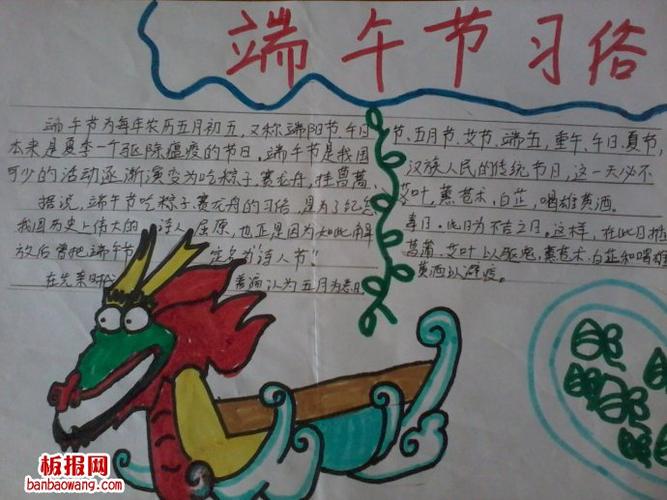 端午节习俗
端午节为每年农历五月初五,又称端阳节、午日
本来是夏季一个驱除瘟疫的节日,端午节是我国
可少的活动逐渐演变为吃粽子,赛龙舟,挂菖蒲、
据说,端午节吃粽子,赛龙舟的习俗,是为了纪念
我国历史上伟大的 诗人屈原,也正是因为如此解
放后曾把端午节 定名为“诗人节”
在先秦时代 普遍认为五月为毒月
节、五月节、艾节、端五,重午、午日、夏节,
汉族人民的传统节日,这一天必不
艾叶,薰苍术、白芷,喝雄黄酒。
毒月。此日为不吉之日。这样,在此日插
菖蒲、艾叶以驱鬼,薰苍术、白芷和喝雄
黄酒以避疫。
板报网
banbaowang.com